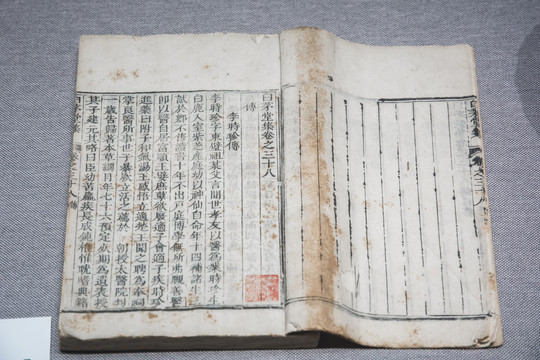 白茅堂集 卷之三十八
白茅堂集卷之三十八
傳
李時珍傳
李時珍字東璧祖某父言聞世孝友以醫為業時珍生
白鹿入室紫芝產庭幼以神仙自命年十四補諸
試於鄉不售讀書十年不出戶庭博學無所弗瞡善醫
即以醫自居富順王嬖庶孽欲廢適子會適子疾時珍
進藥曰附子和氣湯王感悟立適楚王聞之聘為奉祠
掌良醫所事世子暴厥立活之薦於 朝授太醫院判
一歲告歸著本草綱目年七十六預定死期為遺表授
其子建元其略曰臣幼苦羸疾長成鈍椎惟耽嗜典籍
白茅堂集 卷之三十八 傳